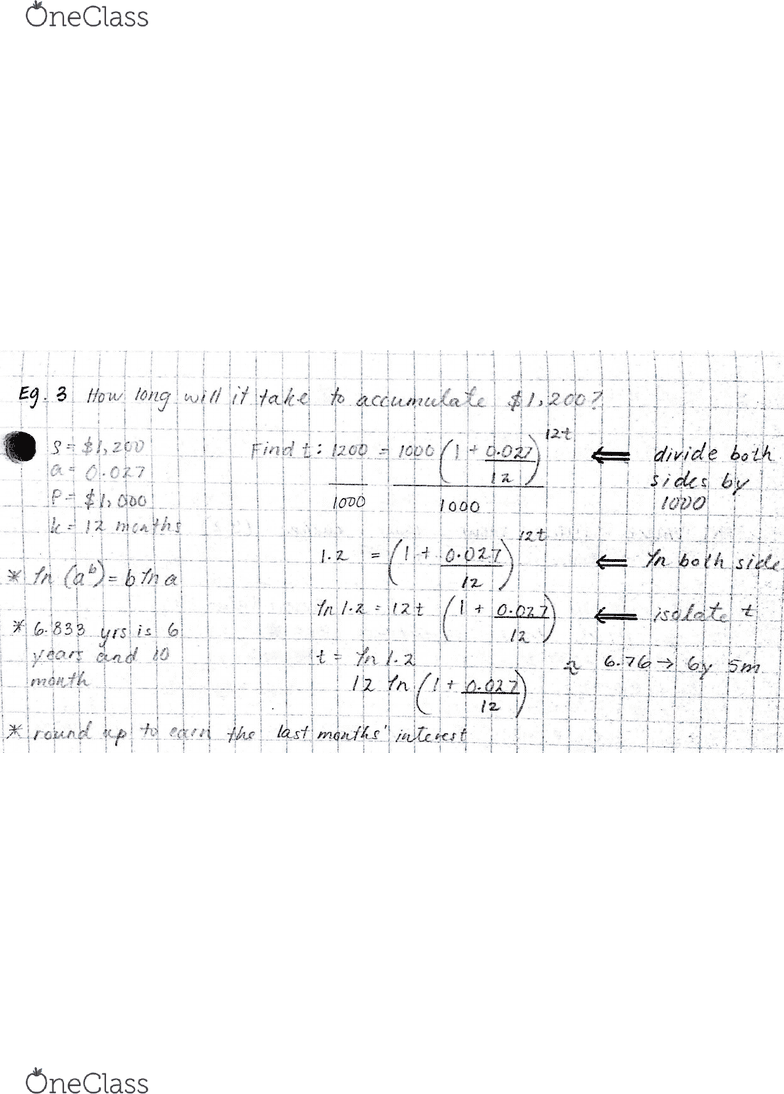 OneClass
Eg. 3 How long will it take to accumulate $1,200?
S = $1,200
a = 0.027
P = $1,000
k = 12 months
* ln (a^b) = b ln a
* 6.833 yrs is 6
years and 10
month
Find t: 1200 = 1000 (1 + 0.027/12)^12t ⇐ divide both
sides by
1000
1000 1000
1.2 = (1 + 0.027/12)^12t ⇐ ln both side
ln 1.2 = 12t (1 + 0.027/12) ⇐ isolate t
t = ln 1.2 ≈ 6.76 → 6y 5m
12 ln (1 + 0.027/12)
* round up to earn the last months' interest
OneClass